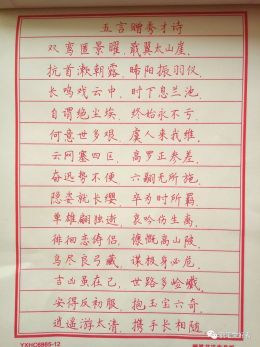 五言赠秀才诗
双鸾匿景曜，戢翼太山崖，
抗首漱朝露，晞阳振羽仪。
长鸣戏云中，时下息兰池。
自谓绝尘埃，终始永不亏。
何意世多艰，虞人来我维，
云网塞四区，高罗正参差。
奋迅势不便，六翮无所施。
隐姿就长缨，卒为时所羁。
单雄翩独逝，哀吟伤生离。
徘徊恋俦侣，慷慨高山陂，
鸟尽良弓藏，谋极身必危。
吉凶虽在己，世路多崄巇。
安得反初服，抱玉宝六奇。
逍遥游太清，携手长相随。
YXHC6865-12